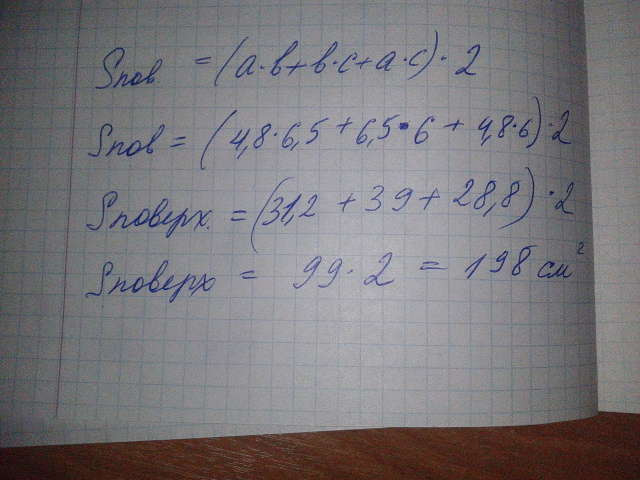 Sпов = (а·в+в·с+а·с)·2
Sпов = (4,8·6,5+6,5·6+4,8·6)·2
Sповерх. = (31,2+39+28,8)·2
Sповерх = 99·2 = 198 см²